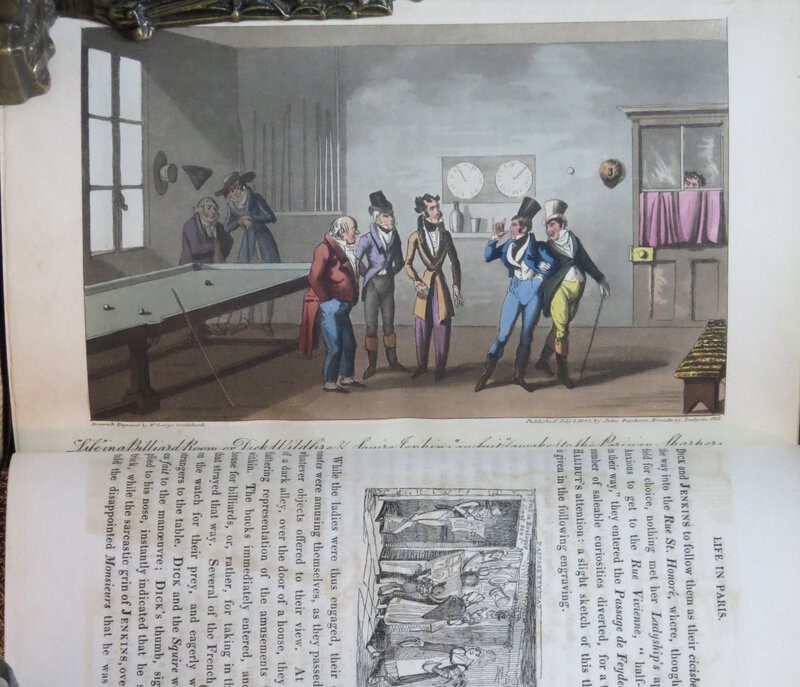 Drawn & Engraved by Mr. George Cruikshank
Published July 1, 1822, by John Fairburn, Broadway, Ludgate Hill
"Life" in a Billiard Room, or Dick Wildfire & Squire Jenkins "au fait" awake to the Parisian Sharpers
LIFE IN PARIS.
DICK and JENKINS to follow them as their cicisbe
the way into the Rue St. Honoré, where, though
field for choice, nothing met her Ladyship's a
Anxious to get to the Rue Vivienne, “ half-
in their way,” they entered the Passage de Feyde
number of saleable curiosities diverted, for a t
HALIBUT's attention: a slight sketch of this th
is given in the following engraving.
PASSAGE FEYDEAU
While the ladies were thus engaged, their
were amusing themselves, as they passed
whatever objects offered to their view. At
f a dark alley, over the door of a house, they
representation of the amusements
The bucks immediately entered, and
for billiards, or, rather, for taking in t
that strayed that way. Several of the French
on the watch for their prey, and eagerly w
to the table. DICK and the Squire w
fait to the manœuvre; DICK's thumb, sig
plied to his nose, instantly indicated that he s
while the sarcastic grin of JENKINS, ove
told the disappointed Monsieurs that he was